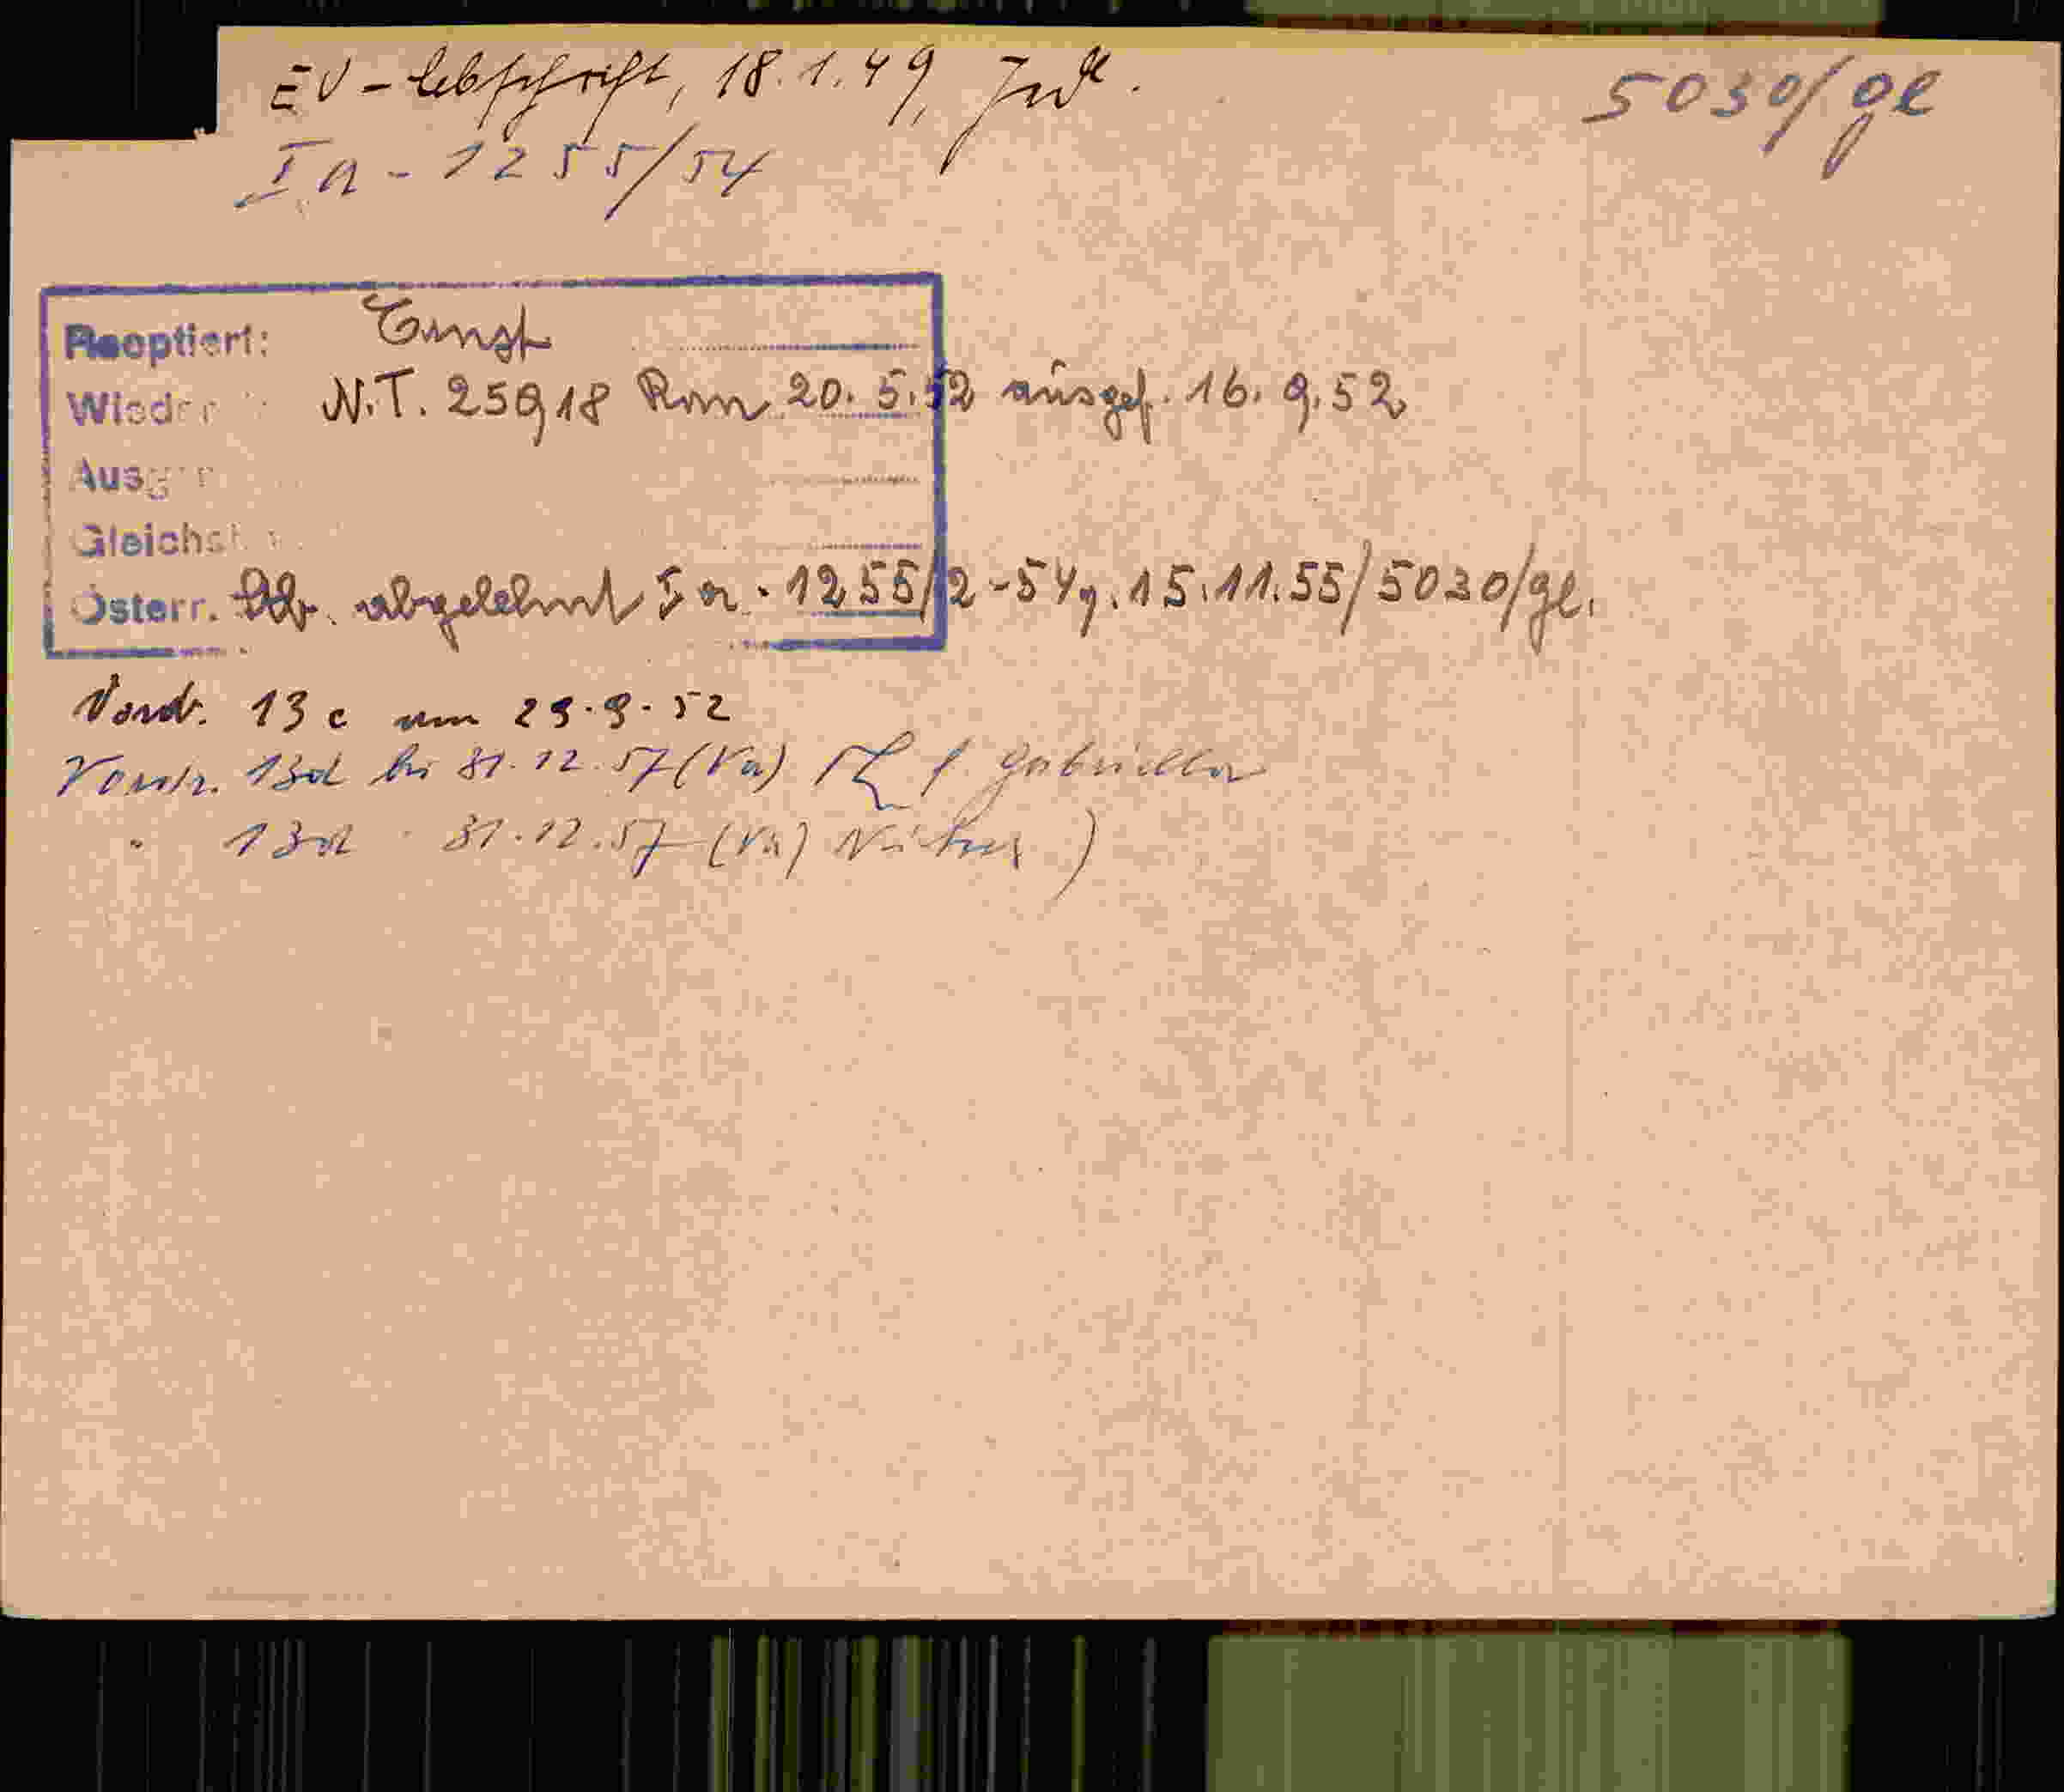 EV-Abschrift, 18.1.49,
5030/gl
Ia-1255/54
Reoptiert: Ernst
Wieder N.T. 25918 Rom 20.5.52 ausgef. 16.9.52
Ausg
Gleichst
Österr. Stb. abgelehnt Ia-1255/2-54 v. 15.11.55/5030/gl.
Vordr. 13c am 29.9.52
Vordr. 13d bis 31.12.57 (Va) f. Gabriella
" 13d " 31.12.57 (Va)